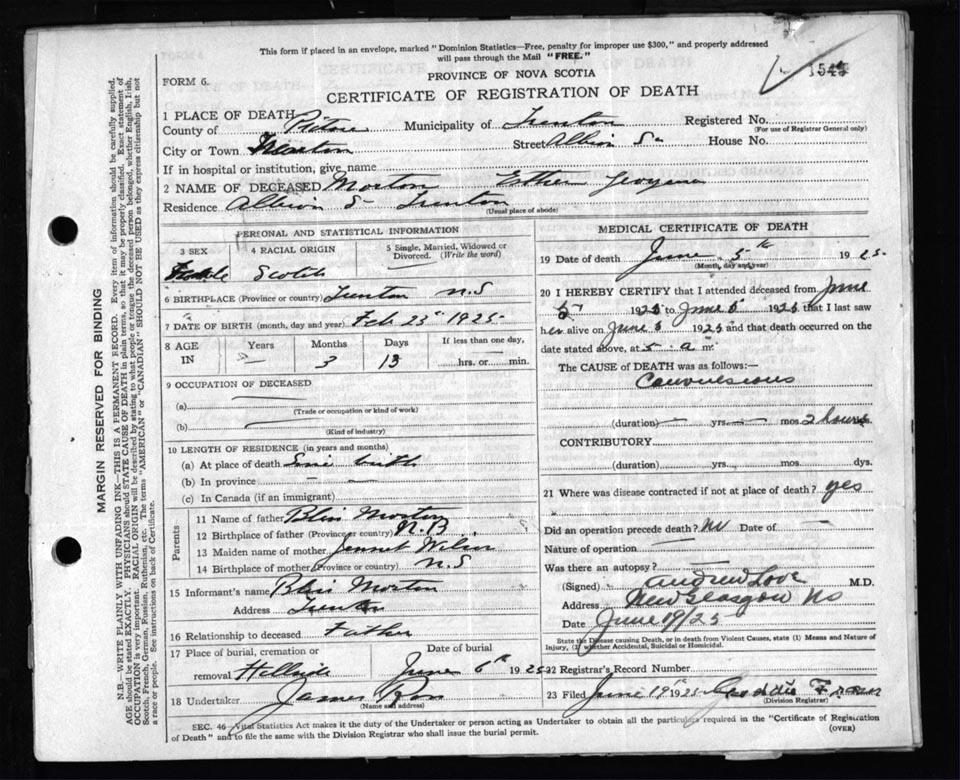 This form if placed in an envelope, marked "Dominion Statistics—Free, penalty for improper use $300," and properly addressed
will pass through the Mail "FREE."
FORM 6.
PROVINCE OF NOVA SCOTIA
CERTIFICATE OF REGISTRATION OF DEATH
1 PLACE OF DEATH
County of Pictou Municipality of Trenton Registered No.
(For use of Registrar General only)
City or Town Street Albion St House No.
If in hospital or institution, give name
2 NAME OF DECEASED Morton Esther Georgena
Residence Albion St Trenton
(Usual place of abode)
PERSONAL AND STATISTICAL INFORMATION
3 SEX 4 RACIAL ORIGIN 5 Single, Married, Widowed or Divorced. (Write the word)
Female Scotch
6 BIRTHPLACE (Province or country) Trenton N.S
7 DATE OF BIRTH (month, day and year) Feb 23rd 1925
8 AGE IN Years Months Days If less than one day,
— 3 13 hrs. or min.
9 OCCUPATION OF DECEASED
(a)
(Trade or occupation or kind of work)
(b)
(Kind of industry)
10 LENGTH OF RESIDENCE (in years and months)
(a) At place of death Since birth
(b) In province —
(c) In Canada (if an immigrant)
Parents
11 Name of father Bliss Morton
12 Birthplace of father (Province or country) N.B
13 Maiden name of mother Jennet
14 Birthplace of mother (Province or country) N.S
15 Informant's name Bliss Morton
Address Trenton
16 Relationship to deceased Father
17 Place of burial, cremation or Date of burial
removal Hillside June 6th 1925
18 Undertaker James
(Name and address)
MEDICAL CERTIFICATE OF DEATH
19 Date of death June 5th 1925
(Month, day and year)
20 I HEREBY CERTIFY that I attended deceased from June
5 1925 to June 5 1925 that I last saw
her alive on June 5 1925 and that death occurred on
date stated above, at 5 a m.
The CAUSE OF DEATH was as follows:—
Convulsions
(duration) — yrs. — mos. 2 hours
CONTRIBUTORY
(duration) yrs. mos. dys.
21 Where was disease contracted if not at place of death? yes
Did an operation precede death? No Date of —
Nature of operation —
Was there an autopsy? —
(Signed) Andrew Love M.D.
Address New Glasgow NS
Date June 19/25
State the Disease causing Death, or in death from Violent Causes, state (1) Means and Nature of
Injury, (2) whether Accidental, Suicidal or Homicidal.
22 Registrar's Record Number
23 Filed June 19th 1925
(Division Registrar)
SEC. 46—Vital Statistics Act makes it the duty of the Undertaker or person acting as Undertaker to obtain all the particulars required in the "Certificate of Registration
of Death" and to file the same with the Division Registrar who shall issue the burial permit.
(OVER)
MARGIN RESERVED FOR BINDING
N.B.—WRITE PLAINLY WITH UNFADING INK—THIS IS A PERMANENT RECORD. Every item of information should be carefully supplied.
AGE should be stated EXACTLY. PHYSICIANS should STATE CAUSE OF DEATH in plain terms, so that it may be properly classified. Exact statement of
OCCUPATION is very important. RACIAL ORIGIN will be described by stating to what people or tongue the deceased person belonged, whether English, Irish,
Scotch, French, German, Russian, Ruthenian, etc. The terms "AMERICAN" or "CANADIAN" SHOULD NOT BE USED as they express citizenship but not
a race or people. See instructions on back of Certificate.